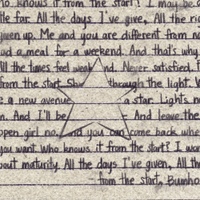 who knows it from the start? I may be a
le far. All the days I've give, All the rig
given up. Me and you are different from no
ad a meal for a weekend. And that's why
All the times feel weak and. Never satisfied,
from the start. She through the light. W
e a new avenue a star. Lights m
t. And I'll be And leave the
open girl no, and you can come back whe
you want. Who knows it from the start? I wan
bout maturity. All the days I've given, All th
from the start, Burnho